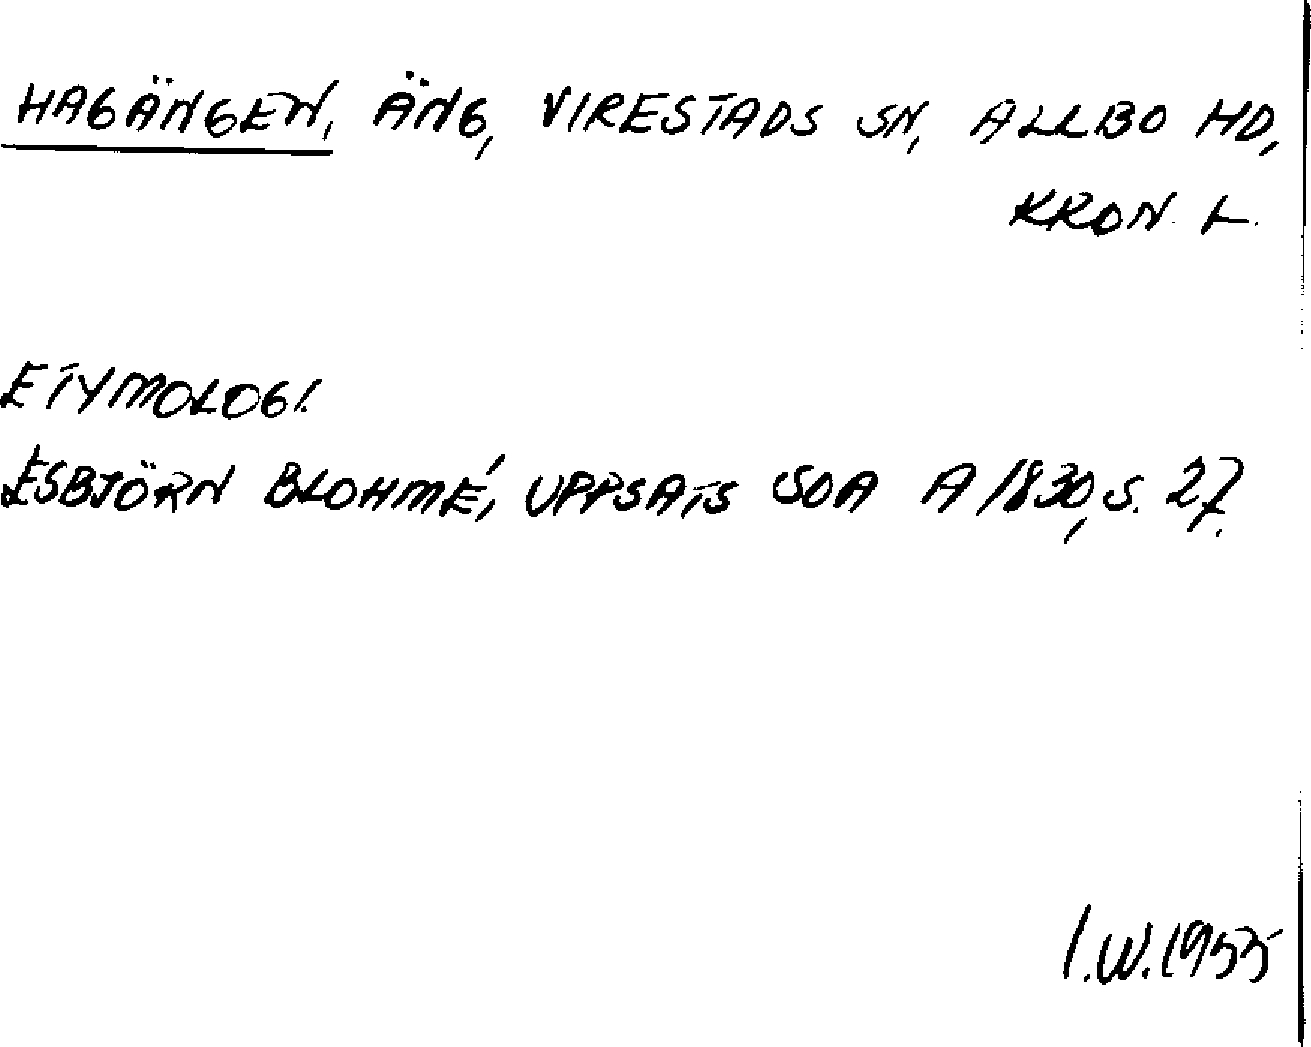 HAGÄNGEN, ÄNG, VIRESTADS SN, ALLBO HD,
KRON. L.
ETYMOLOGI.
ESBJÖRN BLOHMÉ, UPPSATS SOA A 1830, S. 27.
I.W. 1955